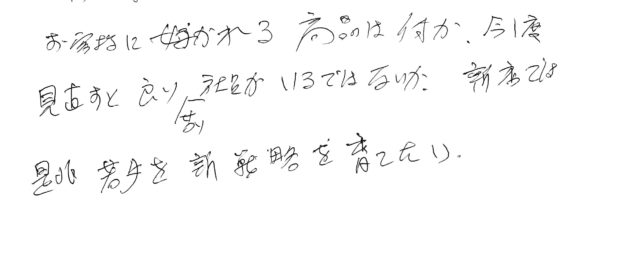 お客様に好かれる商品は何か、今1度
見直すと良い社員がいるではないか。新店では
是非若手を新戦略を育てたい。